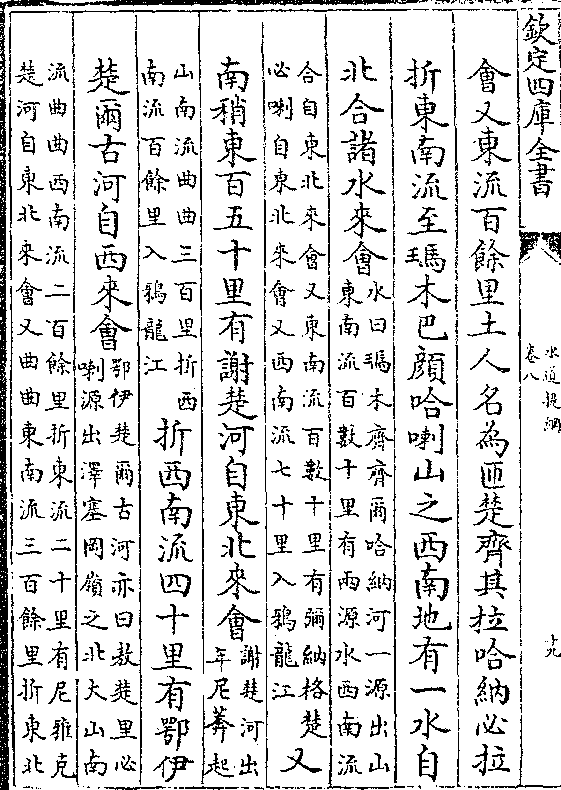 欽定四庫全書
水道提綱
卷八
十九
會又東流百餘里土人名為匝楚齊其拉哈納必拉
折東南流至瑪木巴顔哈喇山之西南地有一水自
北合諸水來會
水曰瑪木齊齊爾哈納河一源出山
東南流百數十里有兩源水西南流
合自東北來會又東南流百數十里有彌納格楚
必喇自東北來會又西南流七十里入鴉龍江
又
南稍東百五十里有謝楚河自東北來會
謝楚河出
年尼莽起
山南流曲曲三百里折西
南流百餘里入鴉龍江
折西南流四十里有鄂伊
楚爾古河自西來會
鄂伊楚爾古河亦曰敖楚里必
喇源出澤塞岡嶺之北大山南
流曲曲西南流二百餘里折東流二十里有尼雅克
楚河自東北來會又曲曲東南流三百餘里折東北